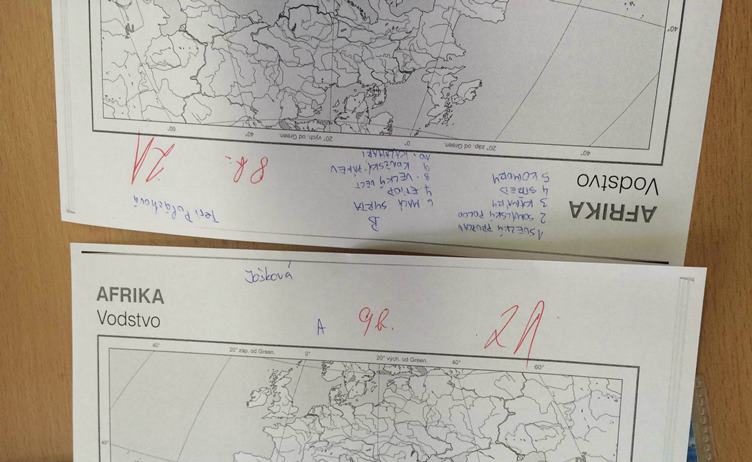 AFRIKA
Vodstvo
1 SUEZSKÝ PRŮPLAV
2 SOMÁLSKÝ POLOO
3 KANÁRY
4 STŘED
5 KOMORY
B
6 MALÁ SYRTA
7 ETIOP
8. VELKÝ VÉCT
9 KONŽSKÁ PÁNEV
10. KALAHARI
8 b.
2A
40°
20° záp. od Green.
0°
20° vých. od Green.
40°
60°
40°
Jošková
AFRIKA
Vodstvo
A
9b.
2A
40°
20° záp. od Green.
0°
20° vých. od Green.
40°
60°
40°